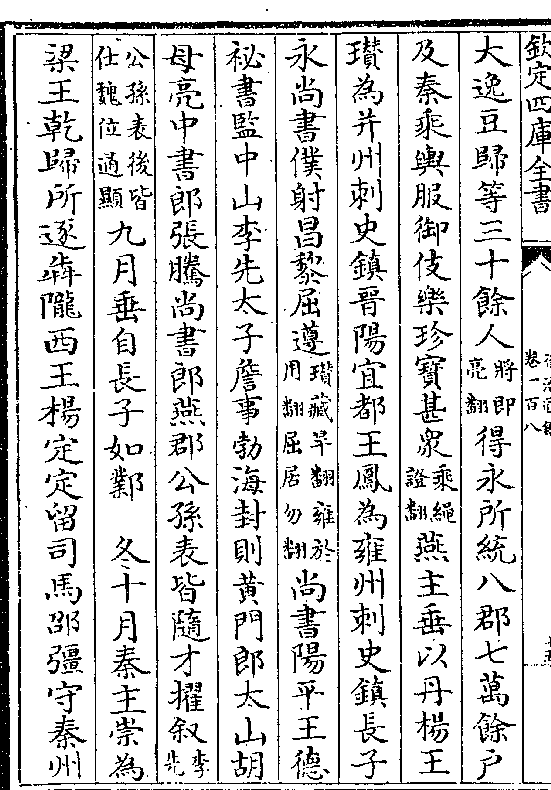 欽定四庫全書
卷一百八
大逸豆歸等三十餘人將即亮翻得永所統八郡七萬餘戶
及秦乘輿服御伎樂珍寶甚衆乘繩證翻燕主垂以丹楊王
瓚為并州刺史鎮晉陽宜都王鳳為雍州刺史鎮長子
永尚書僕射昌黎屈遵瓚藏旱翻雍於用翻屈居勿翻尚書陽平王德
祕書監中山李先太子詹事勃海封則黄門郎太山胡
母亮中書郎張騰尚書郎燕郡公孫表皆隨才擢叙李先
公孫表後皆仕魏位通顯九月垂自長子如鄴　冬十月秦主崇為
梁王乾歸所逐犇隴西王楊定定留司馬邵彊守秦州